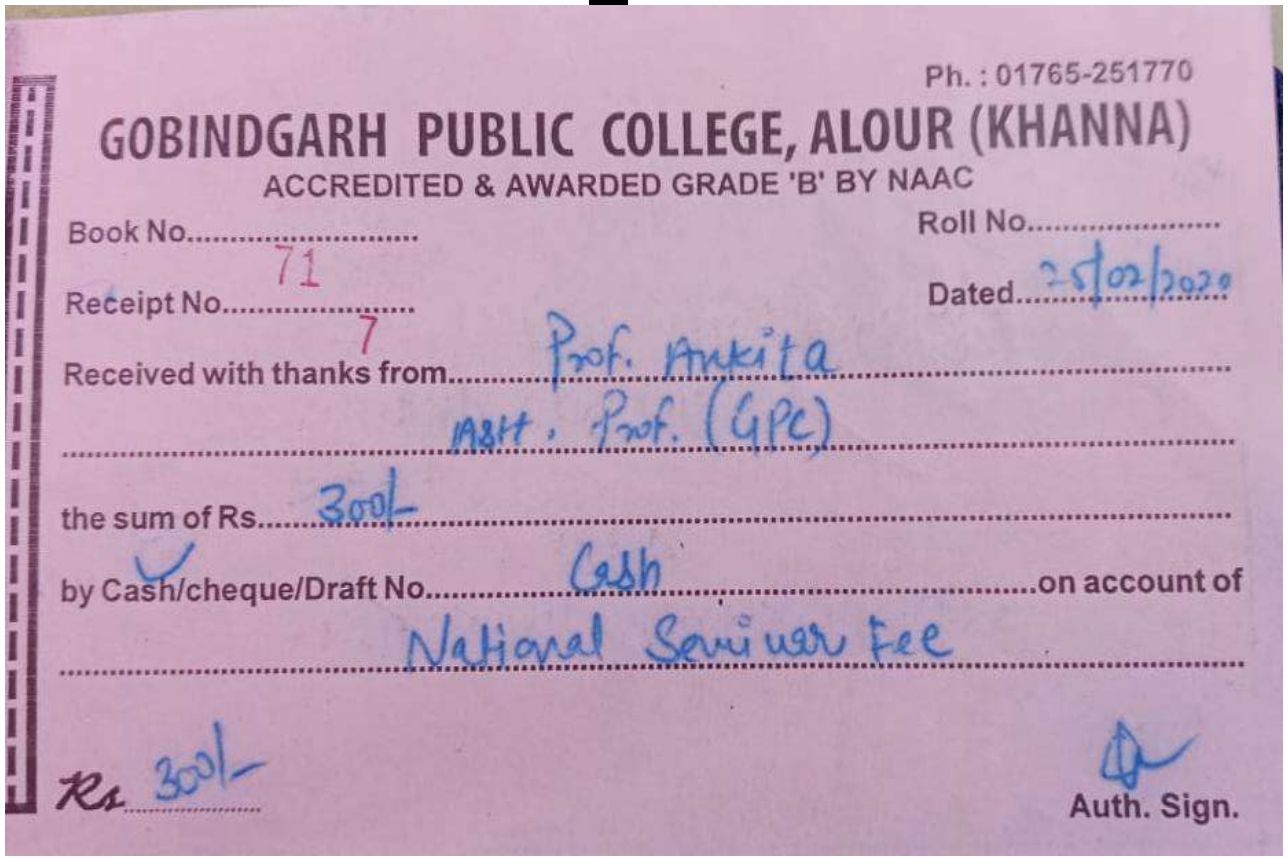 Ph. : 01765-251770
GOBINDGARH PUBLIC COLLEGE, ALOUR (KHANNA)
ACCREDITED & AWARDED GRADE 'B' BY NAAC
Book No.......................... 71 Roll No......................
Receipt No...................... 7 Dated 25/02/2020
Received with thanks from Prof. Ankita
Asst. Prof. (GPC)
the sum of Rs. 300/-
by Cash/cheque/Draft No. Cash on account of
National Seminar Fee
Rs 300/-
Auth. Sign.